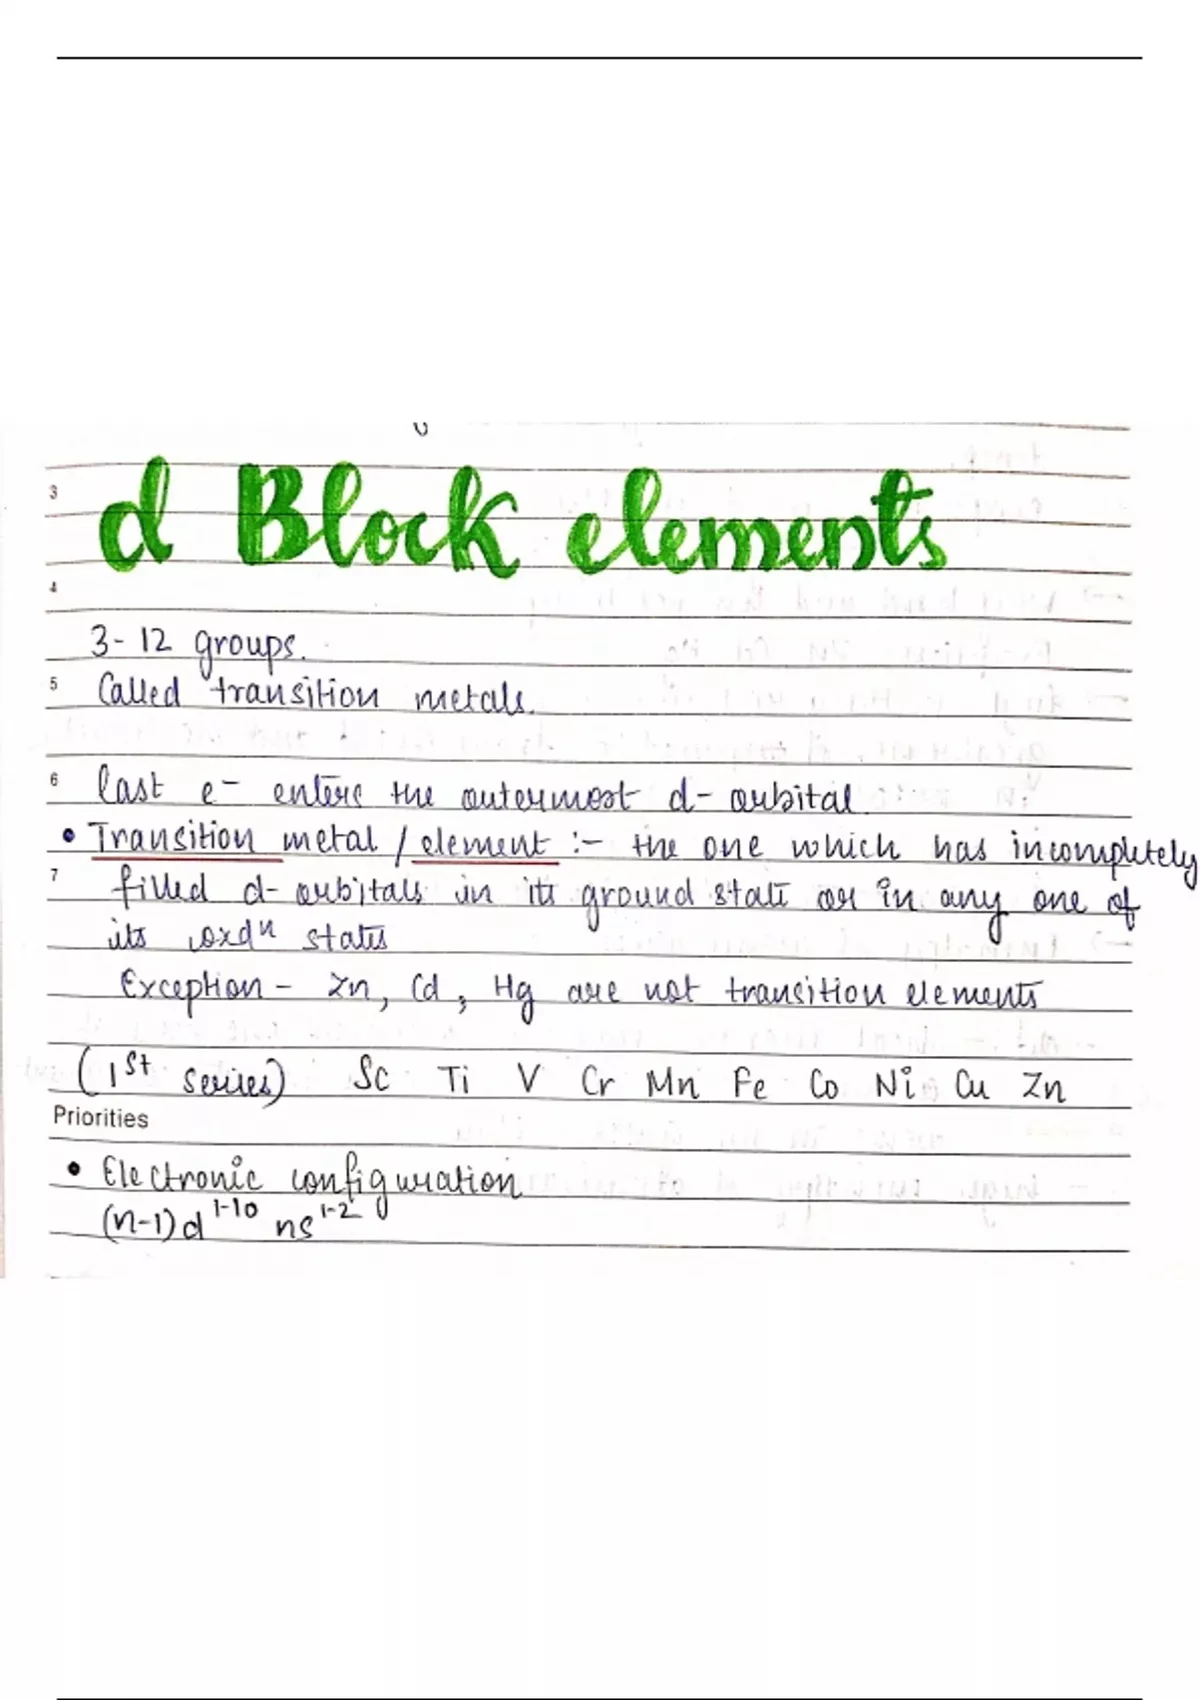 d Block elements
3
4
3-12 groups.
5 Called transition metals.
6 last e- enters the outermost d-orbital
• Transition metal / element :- the one which has incompletely
7 filled d-orbitals in its ground state or in any one of
its oxdn states
Exception - Zn, Cd, Hg are not transition elements
(1st series) Sc Ti V Cr Mn Fe Co Ni Cu Zn
Priorities
• Electronic configuration
(n-1)d1-10 ns1-2